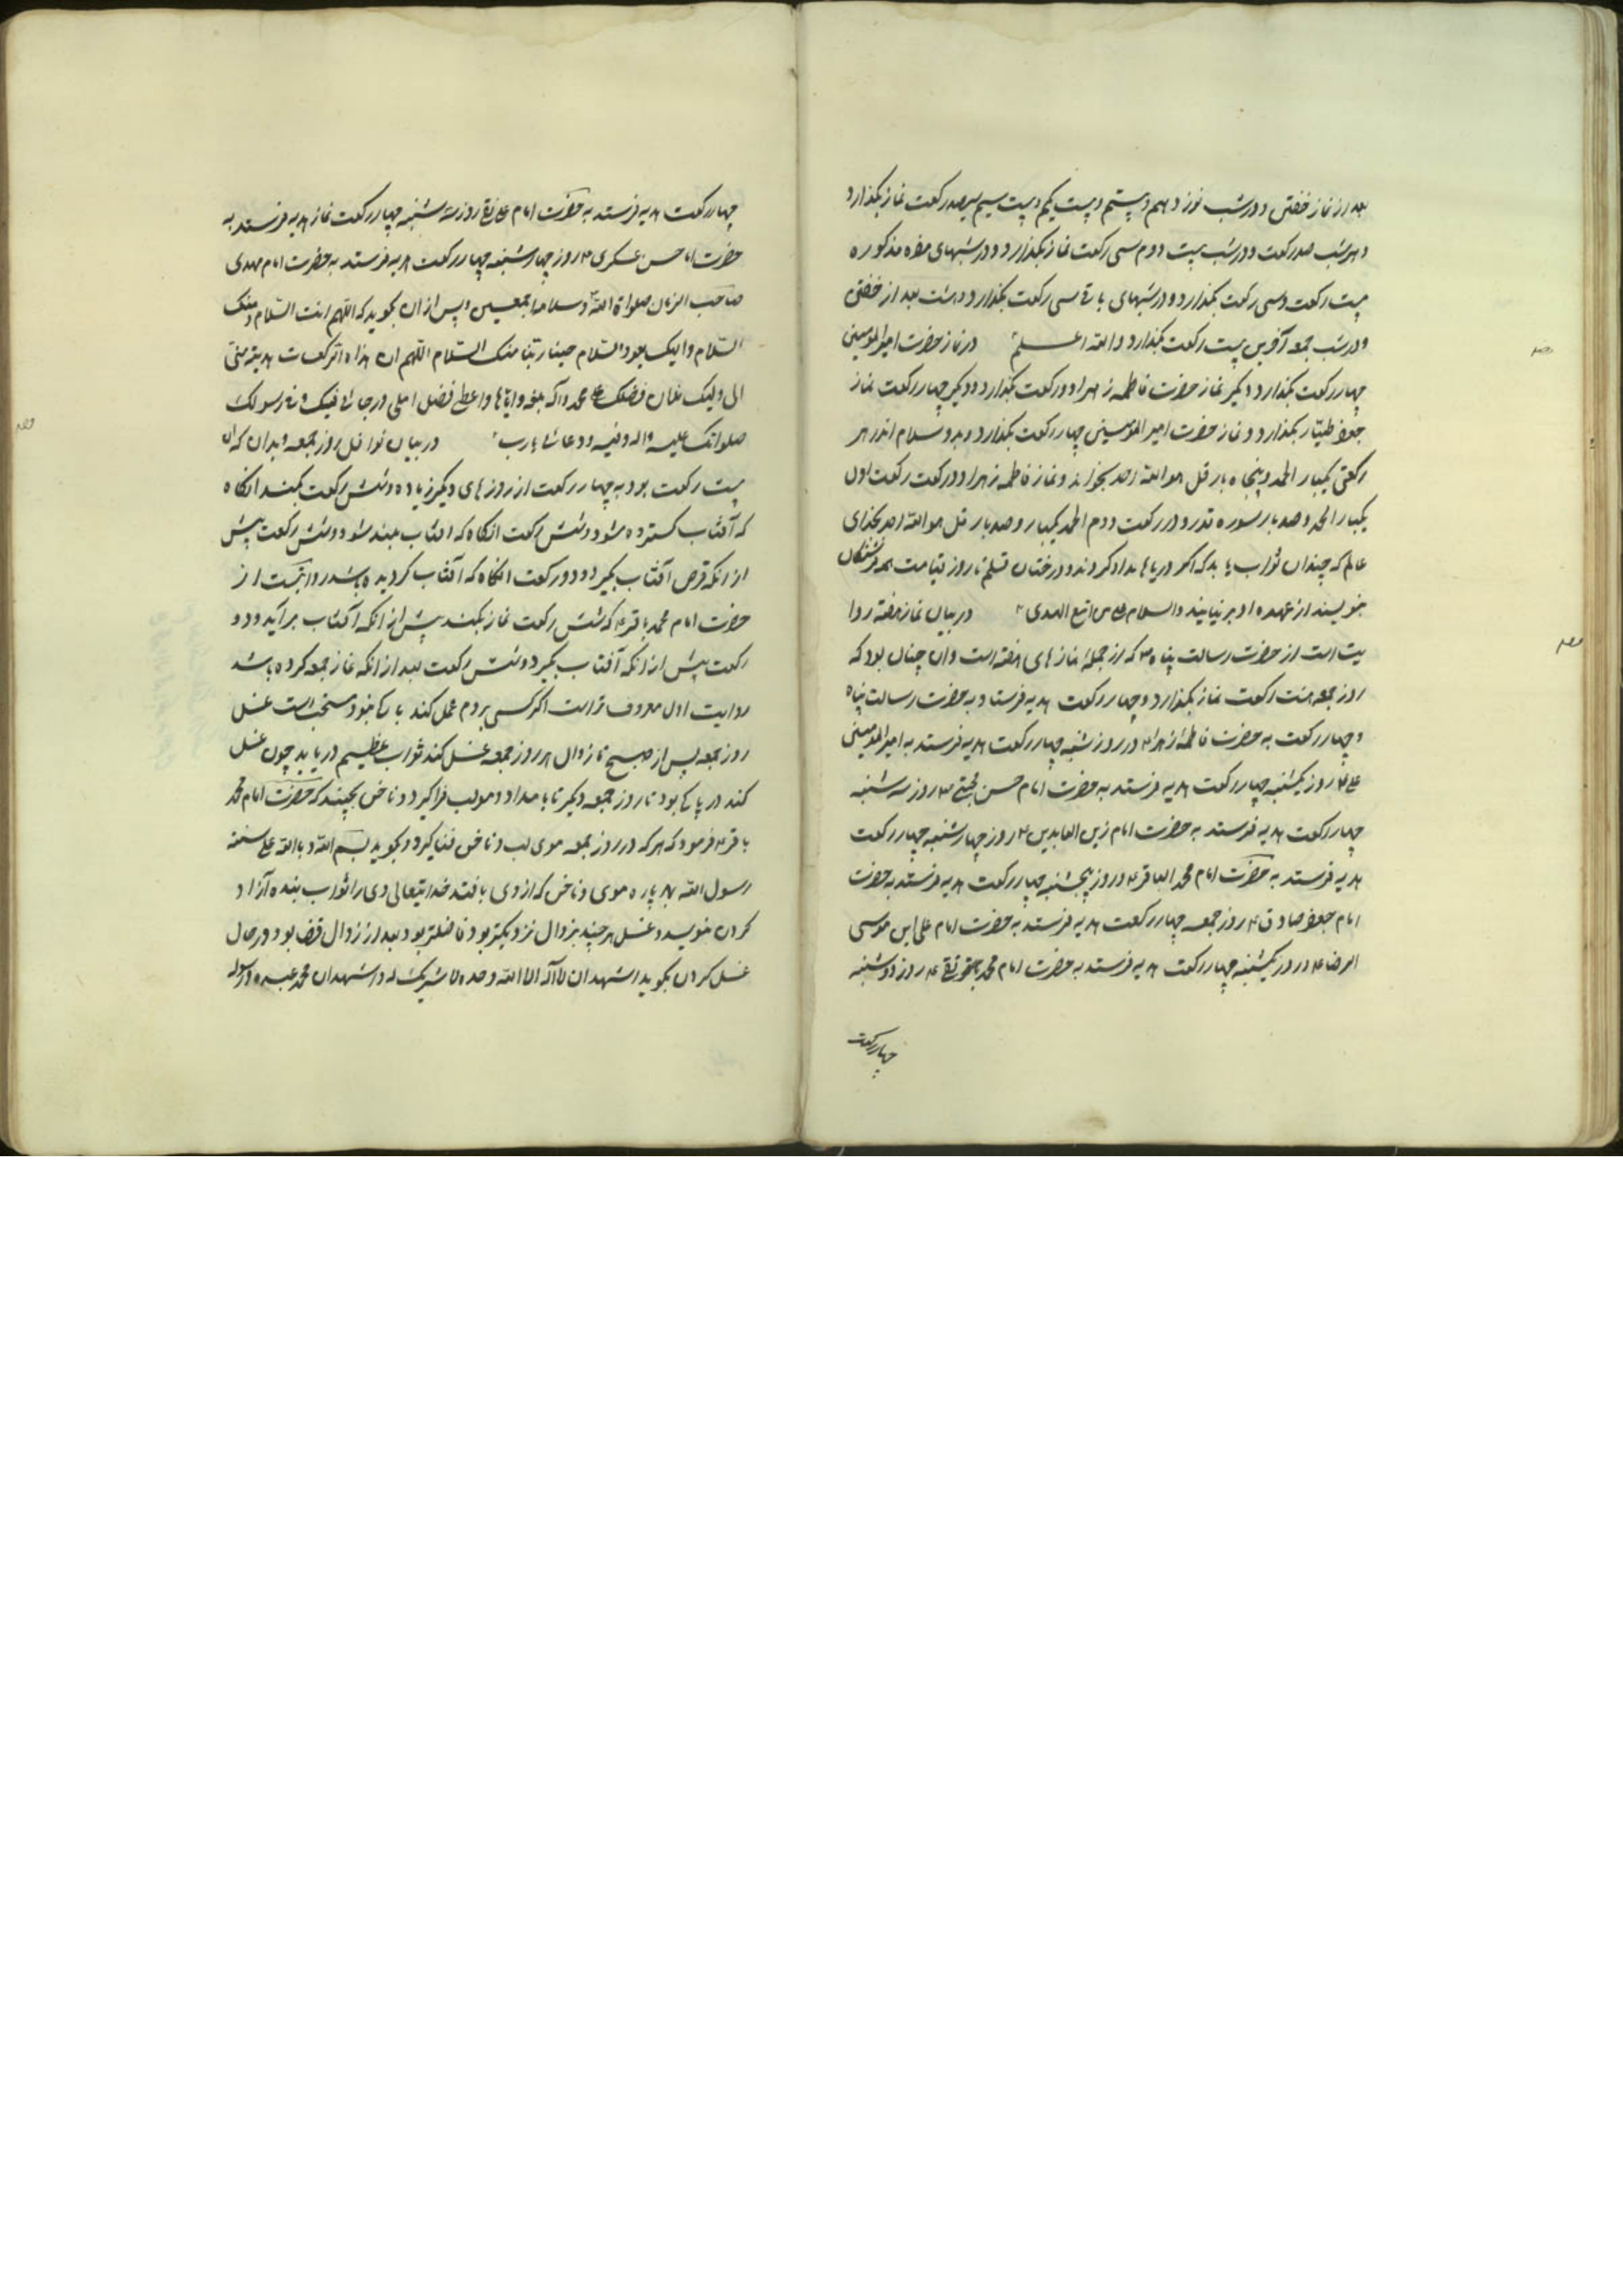 بعد از نماز خفتن و در شب نوزدهم و بیستم و بیست یکم و بیست سیم سیصد رکعت نماز بگذارد
و هر شب صد رکعت و در شب بیست دوم سی رکعت نماز بگذارد و در شبهای مذکوره
بیست رکعت و سی رکعت بگذارد و در شبهای باقی سی رکعت بگذارد هشت بعد از خفتن
و در شب جمعه آخرین بیست رکعت بگذارد والله اعلم در نماز حضرت امیرالمومنین
چهار رکعت بگذارد و دیگر نماز حضرت فاطمه زهرا دو رکعت بگذارد و دیگر چهار رکعت نماز
جعفر طیار بگذارد و نماز حضرت امیرالمومنین چهار رکعت بگذارد و بدو سلام اندر هر
رکعتی یکبار الحمد و پنجاه بار قل هو الله احد بخواند و نماز فاطمه زهرا دو رکعت رکعت اول
یکبار الحمد و صد بار سوره قدر و در رکعت دوم الحمد یکبار و صد بار قل هو الله احد بخدای
عالم که چندان ثواب یابد که اگر دریاها مداد گردند و درختان قلم تا روز قیامت همه فرشتگان
بنویسند از عهده او بر نیایند والسلام علی من اتبع الهدی در بیان نماز هفته روا
یت است از حضرت رسالت پناه ص که از جمله نمازهای هفته است و آن چنان بود که
روز جمعه هشت رکعت نماز بگذارد و چهار رکعت هدیه فرستد به حضرت رسالت پناه
و چهار رکعت به حضرت فاطمه زهرا ع در روز شنبه چهار رکعت هدیه فرستد به امیرالمومنین
علی ع روز یکشنبه چهار رکعت هدیه فرستد به حضرت امام حسن مجتبی ع روز سه شنبه
چهار رکعت هدیه فرستد به حضرت امام زین العابدین ع روز چهارشنبه چهار رکعت
هدیه فرستد به حضرت امام محمد الباقر ع و روز پنجشنبه چهار رکعت هدیه فرستد به حضرت
امام جعفر صادق ع روز جمعه چهار رکعت هدیه فرستد به حضرت امام علی ابن موسی
الرضا ع و در روز یکشنبه چهار رکعت هدیه فرستد به حضرت امام محمد تقی ع روز دوشنبه
چهار رکعت
چهار رکعت هدیه فرستد به حضرت امام علی نقی روز سه شنبه چهار رکعت نماز هدیه فرستد به
حضرت امام حسن عسکری ع روز چهارشنبه چهار رکعت هدیه فرستد به حضرت امام مهدی
صاحب الزمان صلواة الله و سلامه اجمعین و پس از آن بگوید که اللهم انت السلام و منک
السلام و الیک یعود السلام حینا ربنا منک السلام اللهم ان هذه الرکعات هدیة منی
الی ولیک فصل علی محمد و آله و بلغه و ایاها و اعطنی افضل املی و رجائی فیک و فی رسولک
صلواتک علیه و آله و فیه و دعا یا رب در بیان نوافل روز جمعه و بدان که آن
بیست رکعت بود به چهار رکعت از روزهای دیگر زیاده و شش رکعت بکنند انگاه
که آفتاب گسترده شود و شش رکعت انگاه که افتاب بلند شود و شش رکعت پیش
از انکه قرص آفتاب بگیرد و دو رکعت انگاه که آفتاب گردیده باشد روایتست از
حضرت امام محمد باقر ع که شش رکعت نماز بکنند پیش از انکه آفتاب بر آید و دو
رکعت پیش از انکه آفتاب بگیرد و شش رکعت بعد از انکه نماز جمعه کرده باشد
روایت اول معروف تر است اگر کسی بر دوم عمل کند باکی نبود مستحب است غسل
روز جمعه پس از صبح تا زوال هر روز جمعه غسل کند ثواب عظیم دریابد چون غسل
کند در پاکی بود تا روز جمعه دیگر تا بامداد و موی لب فراگیرد و ناخن بچیند که حضرت امام محمد
باقر ع فرمود که هر که در روز جمعه موی لب و ناخن فراگیرد و بگوید بسم الله و بالله علی سنة
رسول الله بهر پاره موی و ناخن که از وی بافتد خدایتعالی وی را ثواب بنده آزاد
کردن بنویسد و غسل هر چند بزوال نزدیکتر بود فاضلتر بود بعد از زوال قضا بود و در حال
غسل کردن بگوید اشهد ان لا اله الا الله وحده لا شریک له و اشهد ان محمد عبده و رسوله